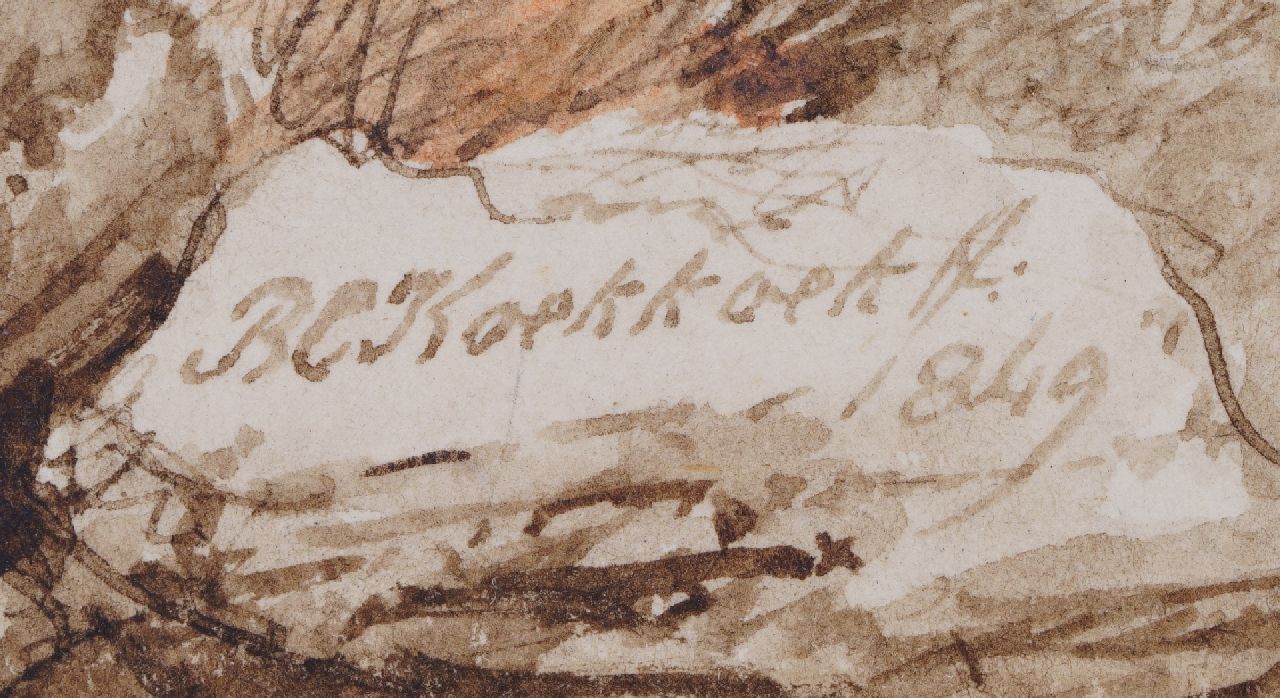 BC Koekkoek ft.
1849